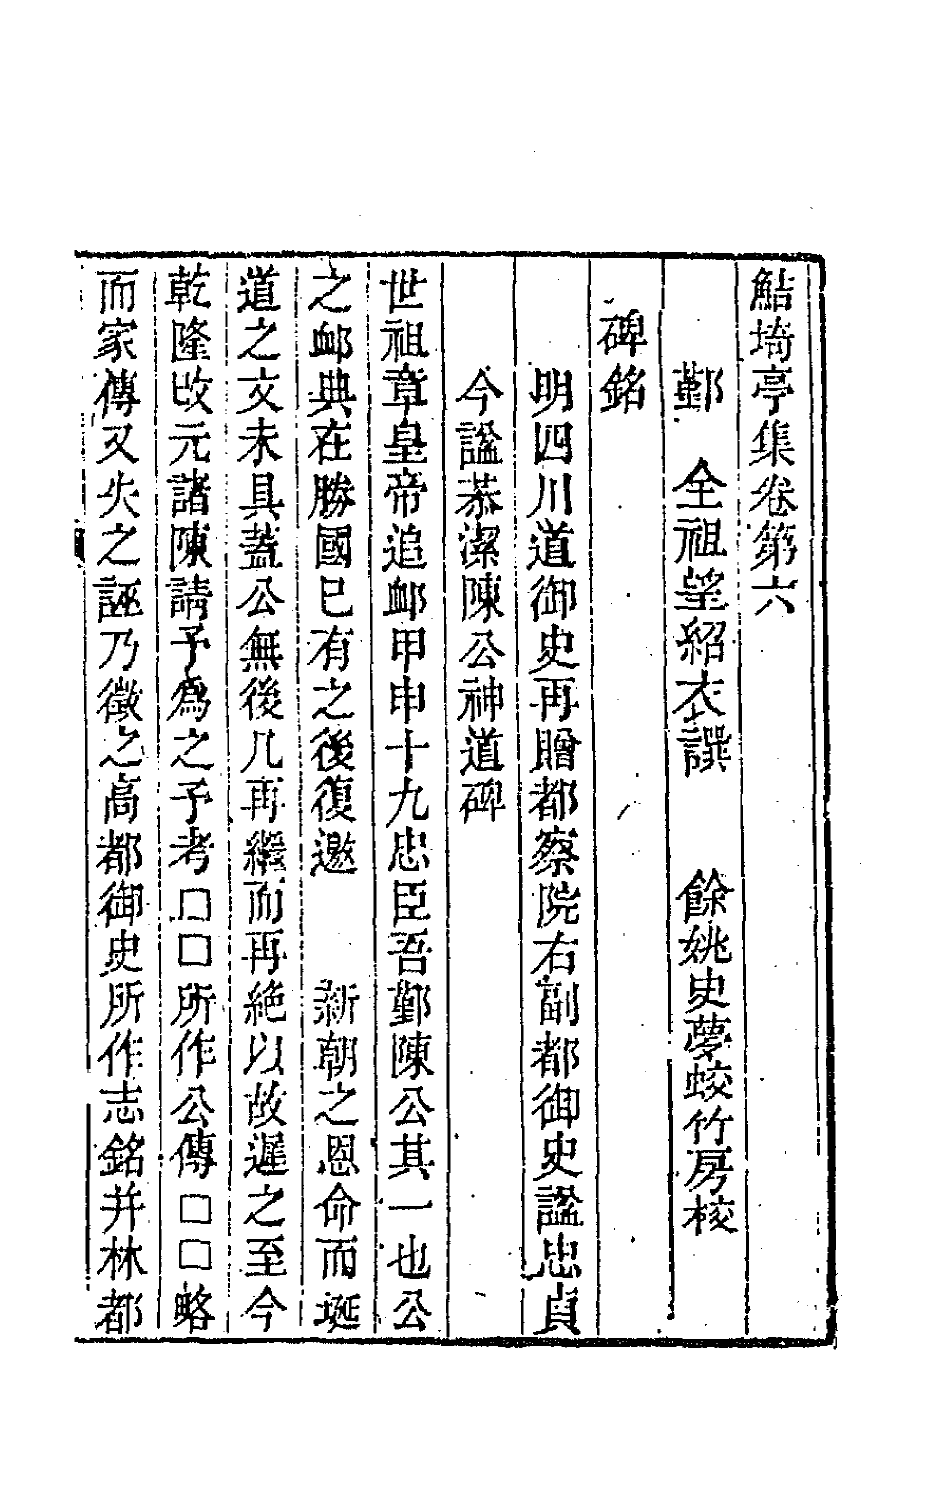 鮚埼亭集卷第六
鄞　全祖望紹衣譔　餘姚史夢蛟竹房校
碑銘
明四川道御史再贈都察院右副都御史諡忠貞
今諡恭潔陳公神道碑
世祖章皇帝追䘏甲申十九忠臣吾鄞陳公其一也公
之䘏典在勝國已有之後復邀　新朝之恩命而埏
道之文未具蓋公無後凡再繼而再絶以故遲之至今
乾隆改元諸陳請予爲之予考□□所作公傳□□略
而家傳又失之誣乃徵之高都御史所作志銘并林都